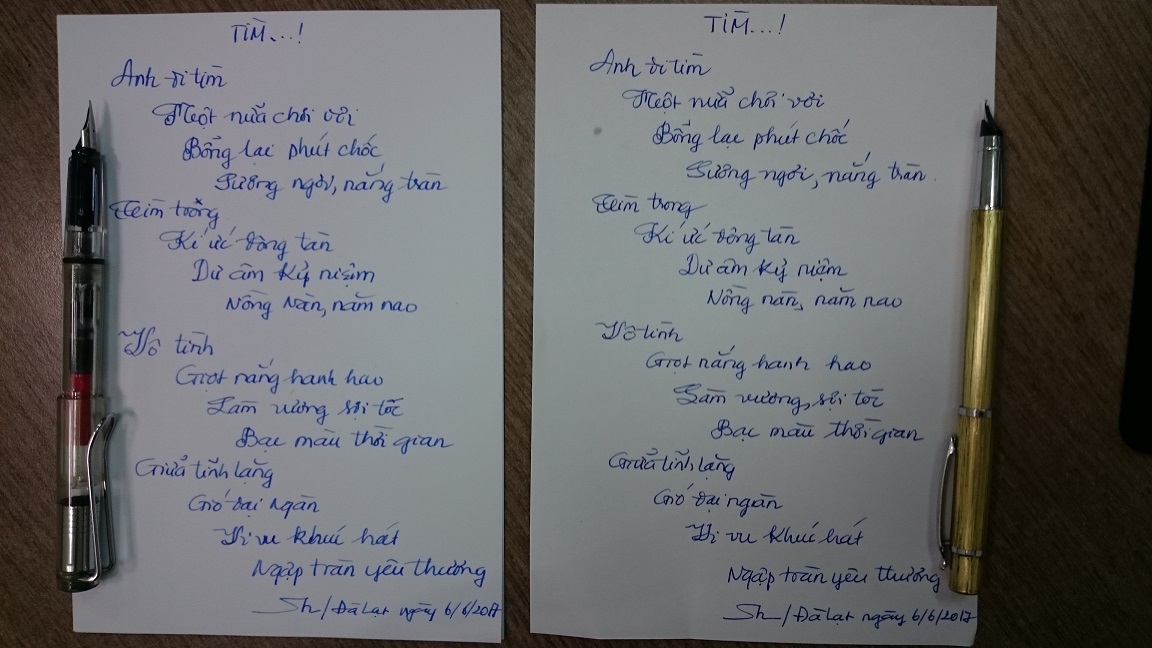 TÌM...!
Anh đi tìm
Một nửa chơi vơi
Bổng lạc phút chốc
Sương ngơi, nắng tràn
Tìm trong
Kí ức đông tàn
Dư âm kỷ niệm
Nồng Nàn, năm nao
Vô tình
Giọt nắng hanh hao
Làm vương sợi tóc
Bạc màu thời gian
Giữa tĩnh lặng
Gió đại Ngàn
Vi vu khúc hát
Ngập tràn yêu thương
Sh/Đà Lạt ngày 6/6/2017
TÌM...!
Anh đi tìm
Một nửa chơi vơi
Bổng lạc phút chốc
Sương ngơi, nắng tràn.
Tìm trong
Kí ức đông tàn
Dư âm kỷ niệm
Nồng nàn, năm nao
Vô tình
Giọt nắng hanh hao
Làm vương, sợi tóc
Bạc màu thời gian
Giữa tĩnh lặng
Gió đại ngàn
Vi vu khúc hát
Ngập tràn yêu thương
Sh/Đà Lạt ngày 6/6/2017